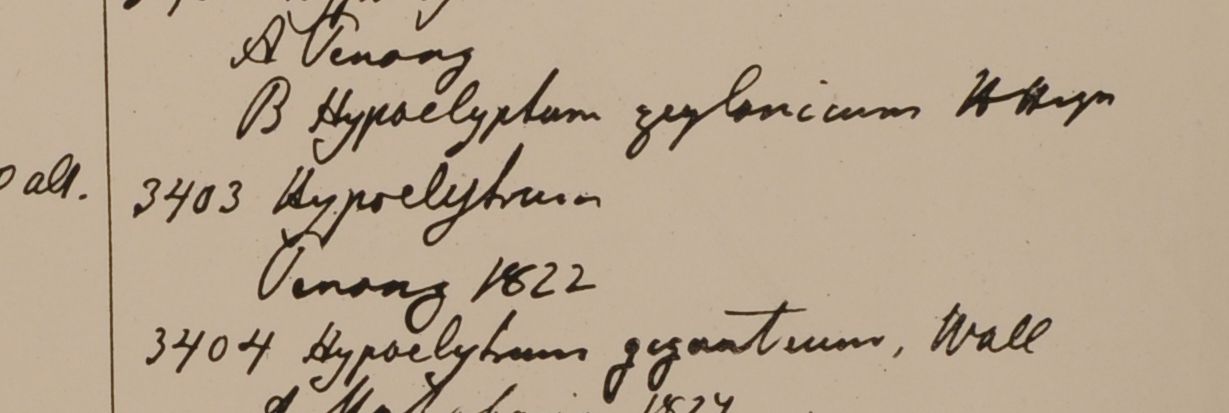 A Penang
B Hypoelyptum zeylanicum H Heyn
alt. 3403 Hypoelytrum
Penang 1822
3404 Hypoelytrum giganteum, Wall
1824